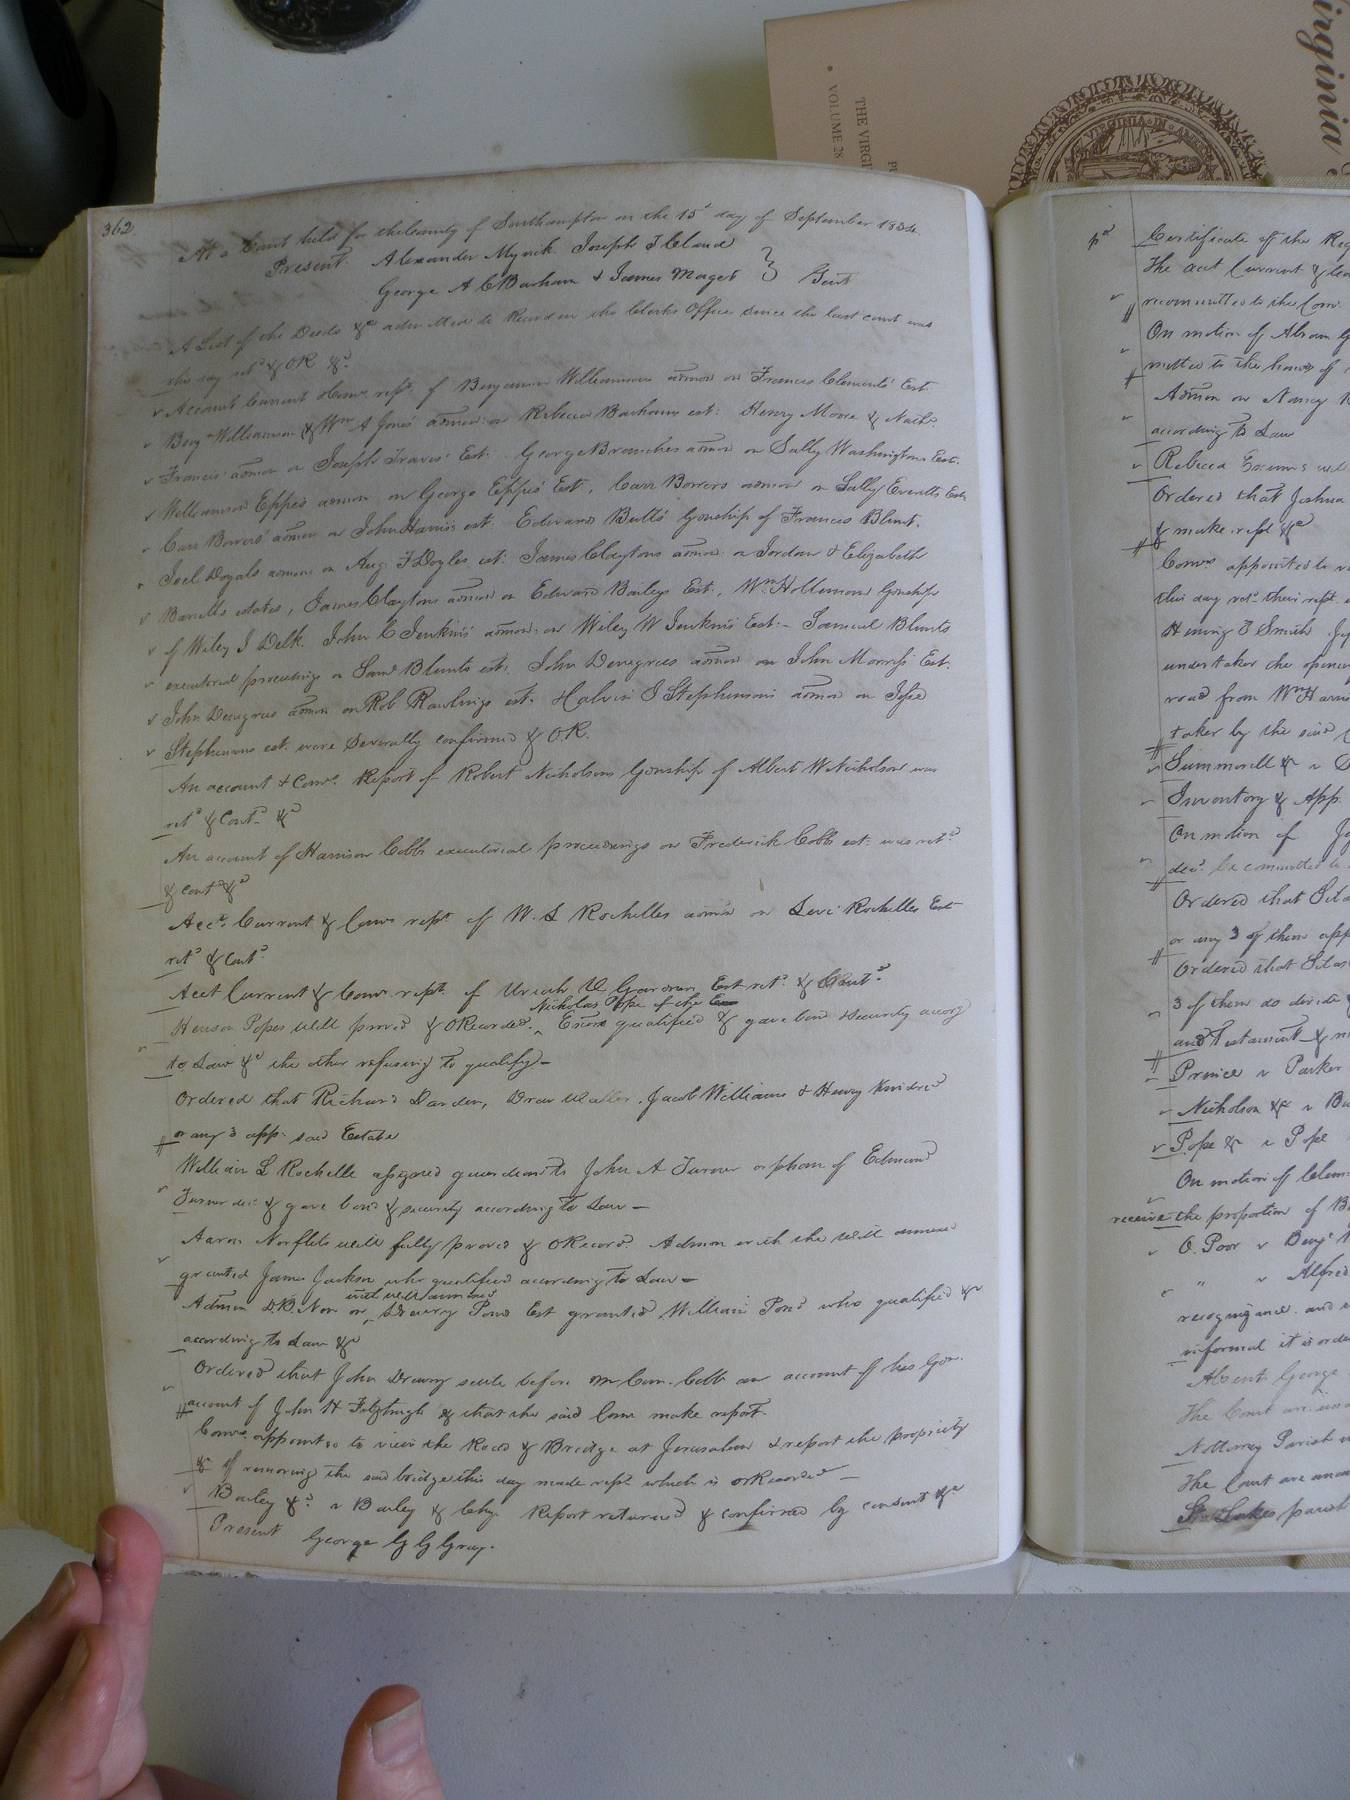 irginia
VOLUME 28
THE VIRGI
VIRGINIA IN A
362
At a Court held for the County of Southampton on the 15th day of September 1834.
Present. Alexander Myrick Joseph T Claud
George A C Barham & James Maget } Gent
A List of the Deeds &c admitted to Record in the Clerks Office since the last court was
this day retd & OR &c.
Account Current & Comrs rept. of Benjamin Williamsons admon on Frances Clements Est.
Benj Williamson & Wm A Jones admon on Rebecca Barhams est: Henry Moore & Nathl
Francis admon on Joseph Travis' Est. George Branches admon on Sally Washingtons Est.
Williamson Eppes admon on George Eppes' Est, Carr Bowers admon on Sally Everetts Est
Carr Bowers' admon on John Harris est. Edward Butts' Gonship of Frances Blunt,
Joel Doyals admon on Aug F Doyles est. James Claytons admon on Jordan & Elizabeth
Barretts estates, James Claytons admon on Edward Baileys Est, Wm Hollemons Gonship
of Wiley J Delk. John C Jenkins admon on Wiley W Jenkins Est - Samuel Blunts
executorial proceedings on Saml Blunts est. John Denegres admon on John Morris Est.
John Denegres admon on Rob Rawlings est. S Stephensons admon on
Stephensons est. were Severally confirmed & OR.
An account & Comrs. Report of Robert Nicholsons Gonship of Albert W Nicholson was
retd & Contd &c
An account of Harrison Cobbs executorial proceedings on Frederick Cobbs est. was retd
& contd &c
Acct. Current & Comrs rept. of W. L Rochelles admon on Levi Rochelles Est
retd & Contd
Acct Current & Comrs rept. of Uriah Gardner Est retd & Contd
Nicholas Pope of the Ex
Henson Popes will proved & ORecorded. Exors qualified & gave bond & security accordg
to Law &c the other refusing to qualify -
Ordered that Richard Darden, Drew Waller, Jacob Williams & Henry Kindred
or any 3 app. said Estate
William L Rochelle assigned guardian to John A Turner orphan of Edmund
Turner decd & gave bond & security according to Law -
Aaron Norfleets will fully proved & ORecord. Admon with the will annexed
granted James Jackson who qualified according to Law -
with will annexed
Admon DB Non on Drewry Pond Est granted William Pond who qualified &c
according to Law &c
Ordered that John Drewry settle before M Com. Cobb an account of his Gon.
account of John H Fitzhugh & that the said Comr make report.
Comrs. appointed to view the Road & Bridge at Jerusalem & report the propriety
of removing the said bridge this day made rept which is orRecorded -
Bailey &c. v Bailey & Chy. Report returned & confirmed by consent &c
Present George G G Gray.
Certificate of the Reg
The acct Current &
recommitted to the Com.
On motion of Abram G
mitted to the hands of
Admon on Nancy
according to Law
Rebecca Exums will
Ordered that Joshua
& make rept &c
Comrs appointed to
this day retd. their rept.
Hening T Smith
undertaker the opening
road from Wm Harri
taker by the said
Summerell & v
Inventory & App.
On motion of
decd. be committed to
Ordered that Silas
or any 3 of them app
Ordered that Silas
3 of them do divide
and Testament &
Prince v Parker
Nicholson &c v
Pope & v Pope
On motion of Clem
receive the proportion of
O. Poor v Benj
" v Alfred
recognizance. and
informal it is orde
Absent George
The Court are
Nottoway Parish
The Court are
St Lukes parish